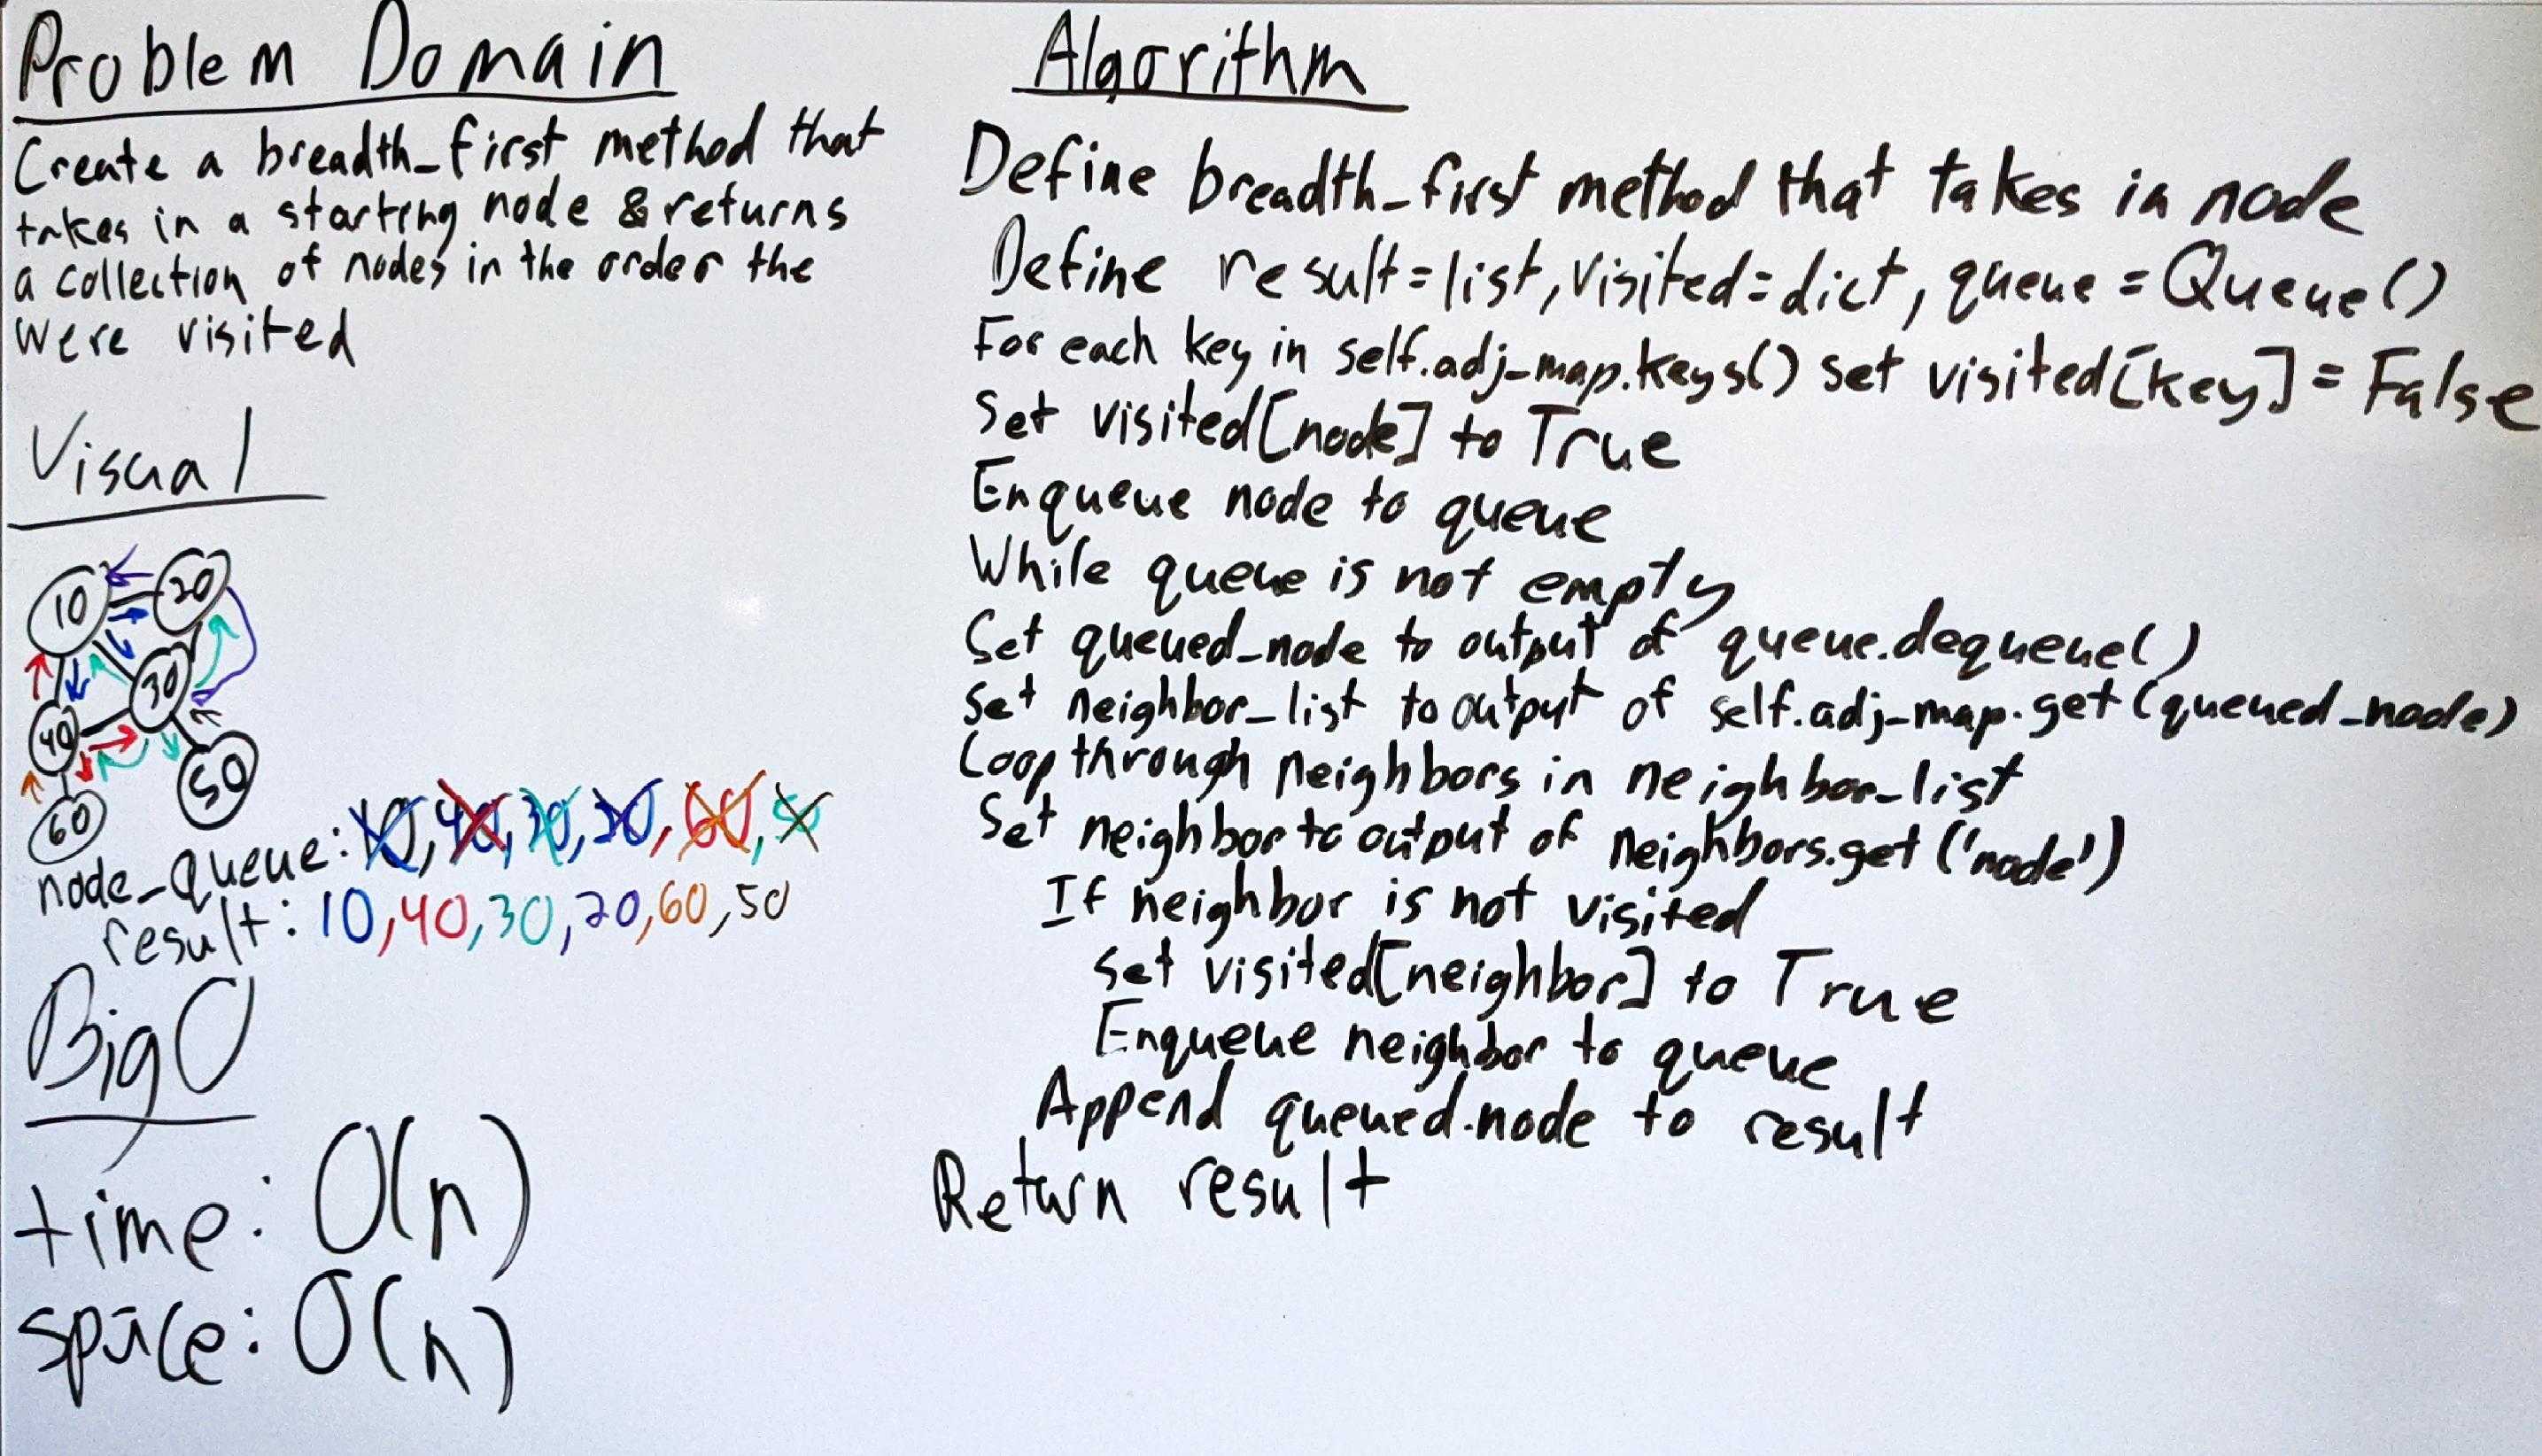 Problem Domain
Create a breadth_first method that
takes in a starting node & returns
a collection of nodes in the order the
were visited
Visual
10 20
30
40
50
60
node_queue: 10, 40, 30, 20, 60, 50
result: 10, 40, 30, 20, 60, 50
Big O
time: O(n)
space: O(n)
Algorithm
Define breadth_first method that takes in node
Define result=list, visited=dict, queue = Queue()
For each key in self.adj_map.keys() set visited[key] = False
Set visited[node] to True
Enqueue node to queue
While queue is not empty
Set queued_node to output of queue.dequeue()
Set neighbor_list to output of self.adj_map.get(queued_node)
Loop through neighbors in neighbor_list
Set neighbor to output of neighbors.get('node')
If neighbor is not visited
set visited[neighbor] to True
Enqueue neighbor to queue
Append queued.node to result
Return result